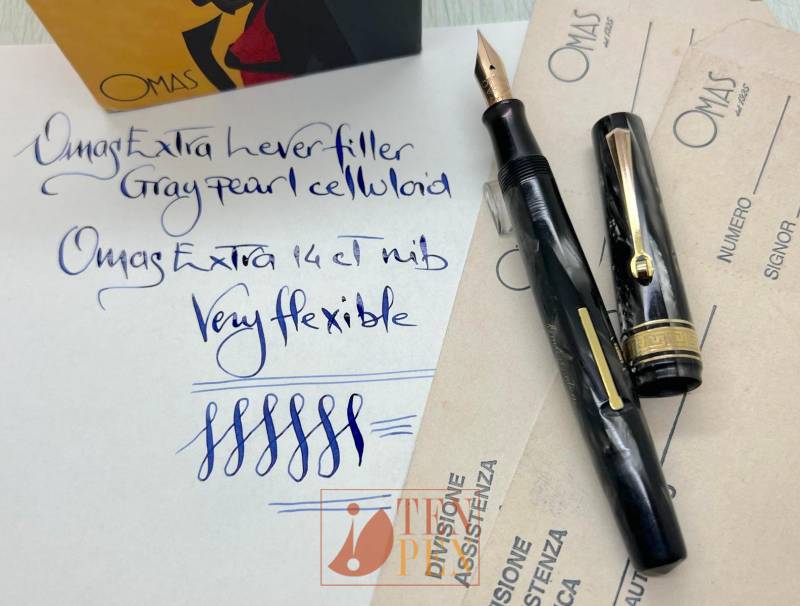 OMAS
Omas Extra Lever filler
Gray pearl celluloid
Omas Extra 14 ct nib
Very flexible
OMAS
dal 1925
OMAS
dal 1925
NUMERO
SIGNOR
DIVISIONE
ASSISTENZA
TEN
PEN